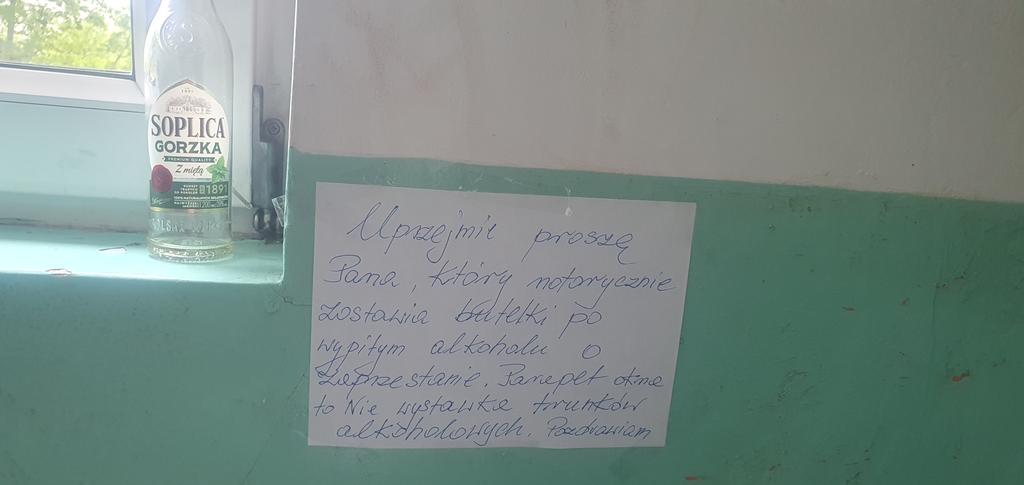 1891
SOPLICA
GORZKA
PREMIUM QUALITY
Z miętą
1891
Uprzejmie proszę
Pana, który notorycznie
zostawia butelki po
wypitym alkoholu o
zaprzestanie. Parapet okna
to Nie wystawka trunków
alkoholowych. Pozdrawiam